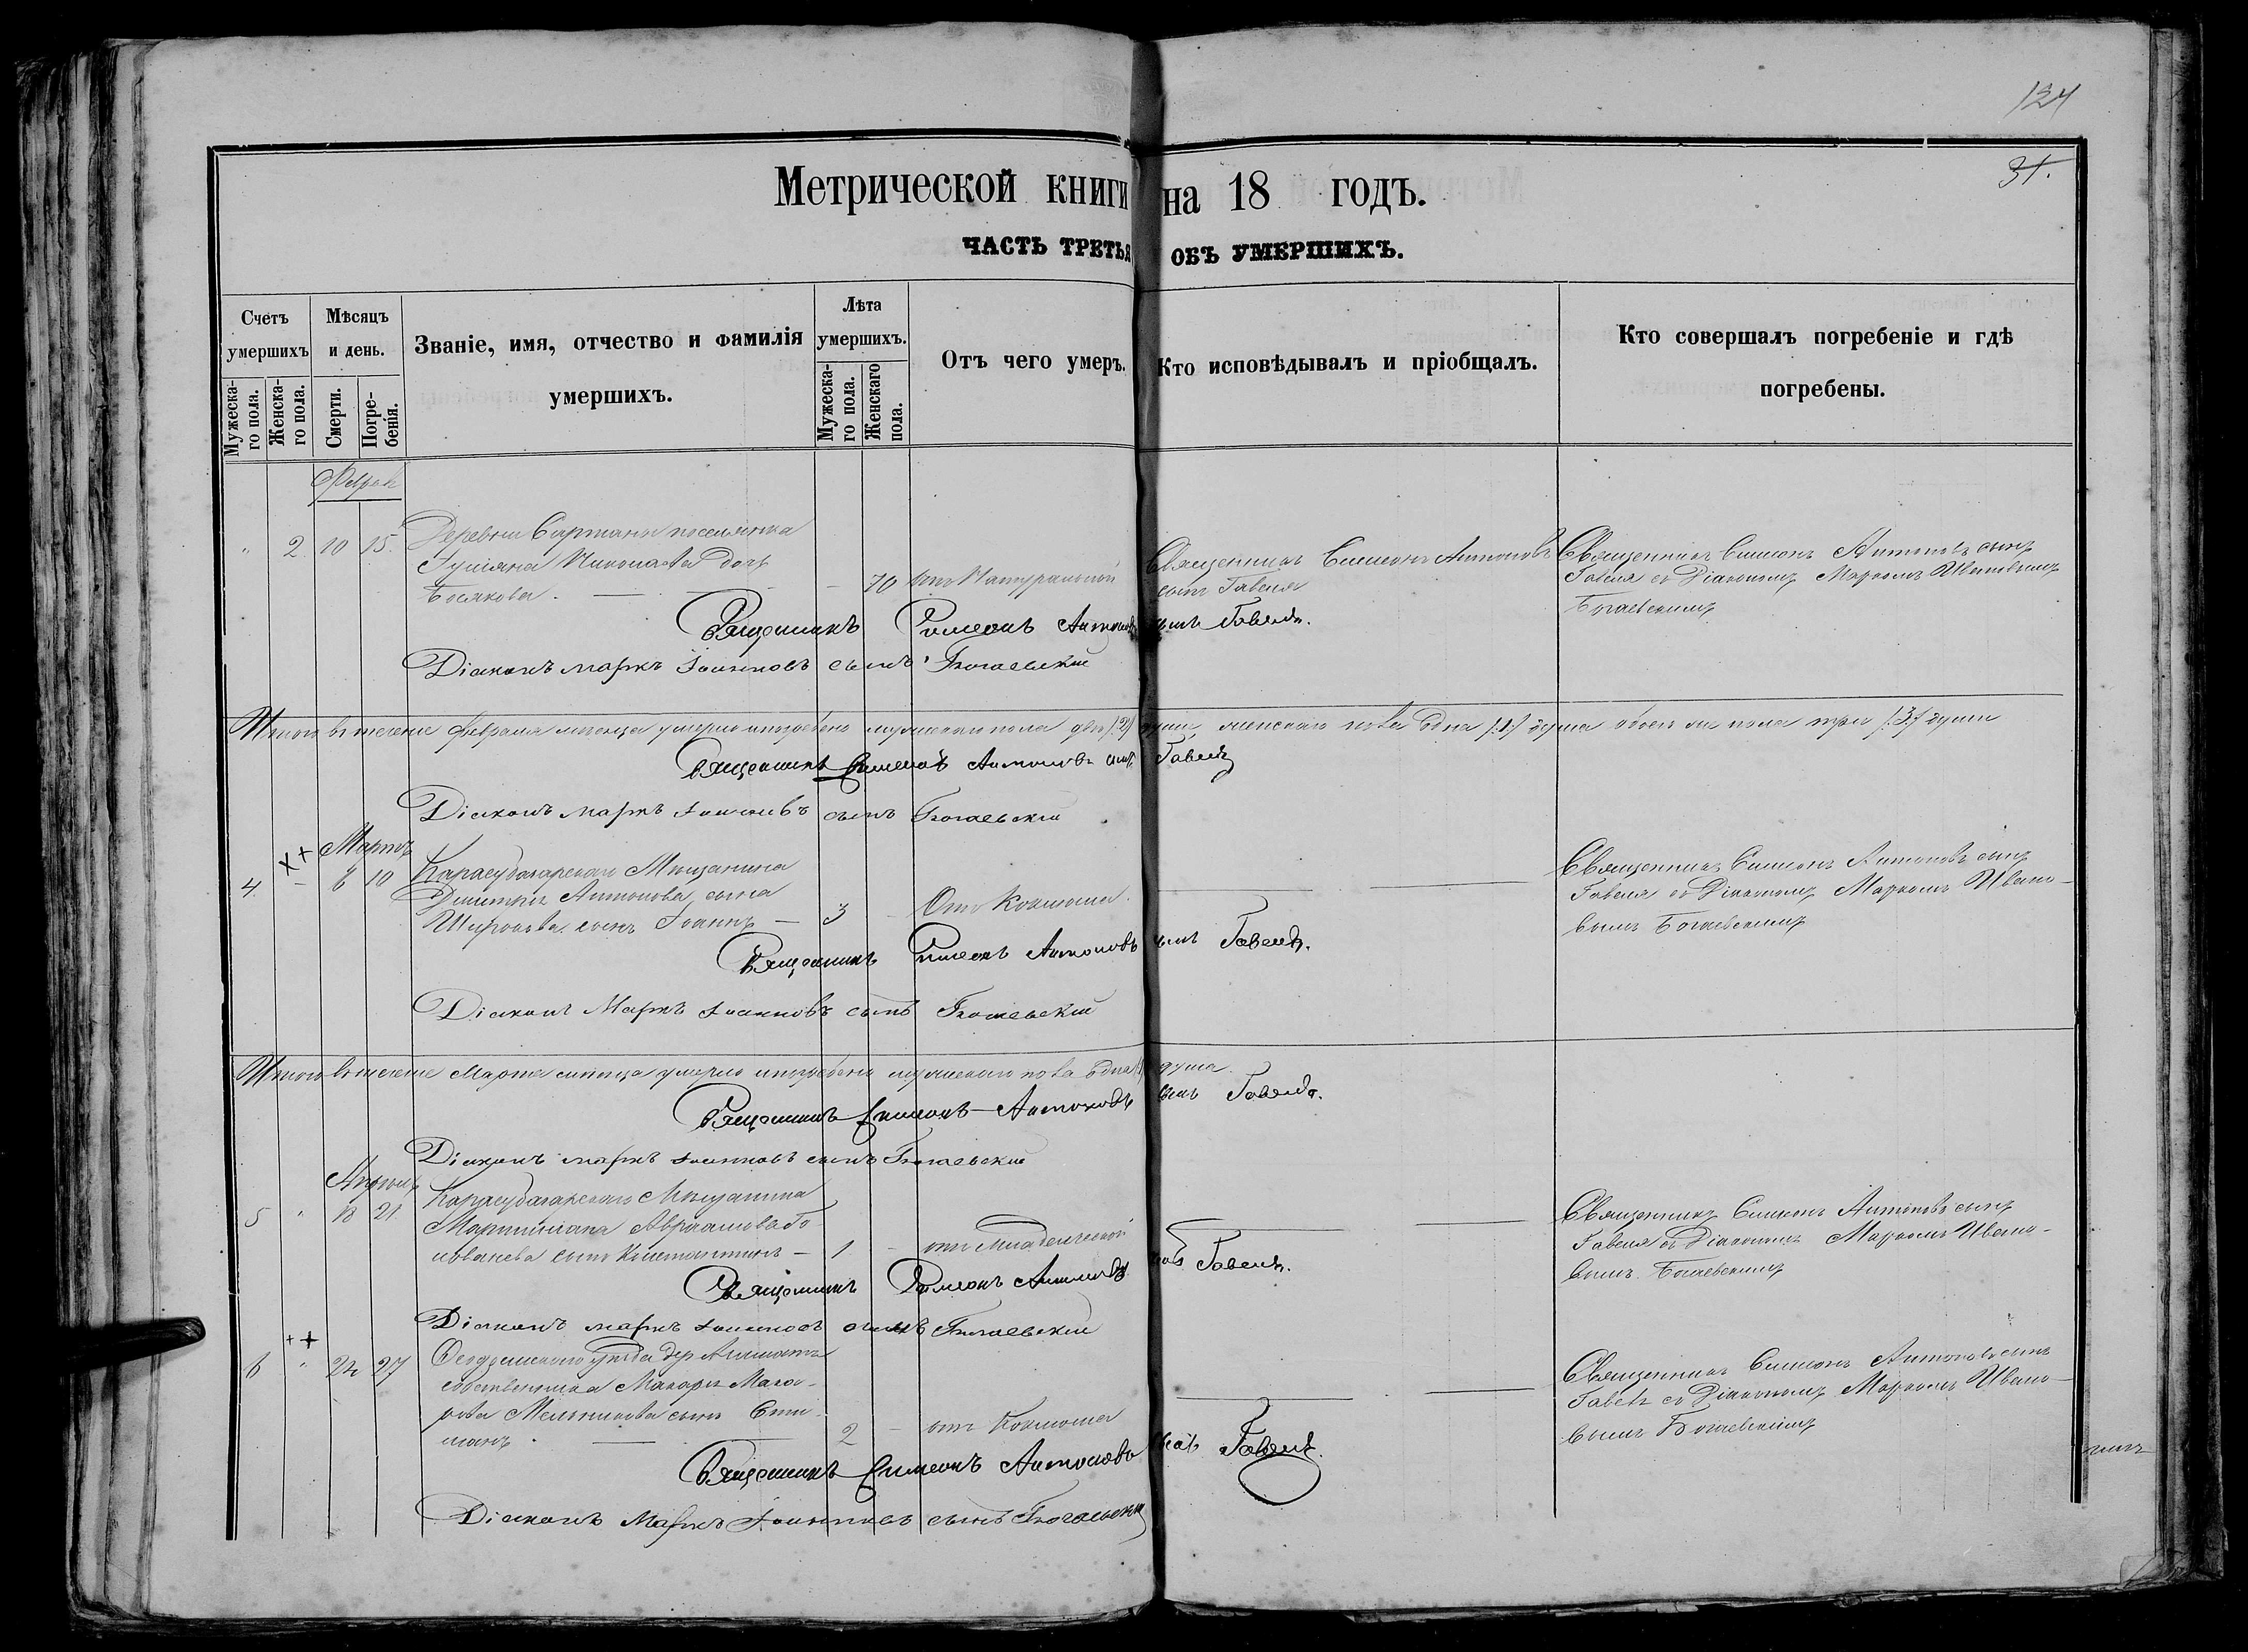 124
31.
Метрической книги на 18 годъ.
ЧАСТЬ ТРЕТЬЯ ОБЪ УМЕРШИХЪ.
Счетъ умершихъ
Мѣсяцъ и день.
Званіе, имя, отчество и фамилія умершихъ.
Лѣта умершихъ.
Отъ чего умеръ.
Кто исповѣдывалъ и пріобщалъ.
Кто совершалъ погребеніе и гдѣ погребены.
Мужеска-го пола.
Женска-го пола.
Смерти.
Погре-бенія.
Мужеска-го пола.
Женскаго пола.
Феврал
" 2 10 15.
Деревни Сартана поселянка
Николаева дочь
— 70
отъ Натуральной
Священникъ Симеонъ Антоновъ
сынъ Гавеля
Священникъ Симеонъ Антоновъ сынъ
Гавеля съ Діакономъ Маркомъ Ивановымъ
Богаевскимъ
Священникъ Симеонъ Антоновъ сынъ Гавеля.
Діаконъ Маркъ Іоанновъ сынъ Богаевскій
Итого въ теченіе февраля месяца умерло и погребено мужескаго пола два /:2:/ души, женскаго пола одна /:1:/ душа обоего же пола три /:3:/ души
Священникъ Симеонъ Антоновъ сынъ Гавеля
Діаконъ Маркъ Іоанновъ сынъ Богаевскій
Мартъ
4. — 8 10
Карасубазарскаго Мещанина
Дмитрія Антонова сына
сынъ Іоаннъ —
3 —
Отъ Коклюша.
Священникъ Симеонъ Антоновъ сынъ
Гавеля съ Діакономъ Маркомъ Ивано-
вымъ Богаевскимъ
Священникъ Симеонъ Антоновъ сынъ Гавеля.
Діаконъ Маркъ Іоанновъ сынъ Богаевскій
Итого въ теченіе Марта месяца умерло и погребено мужескаго пола одна душа.
Священникъ Симеонъ Антоновъ сынъ Гавеля.
Діаконъ Маркъ Іоанновъ сынъ Богаевскій
Апрель
5 " 18 21
Карасубазарскаго Мещанина
Авраамова
сынъ Константинъ —
1 —
отъ Младенческой
Священникъ Симеонъ Антоновъ сынъ
Гавеля съ Діакономъ Маркомъ Ивано-
вымъ Богаевскимъ
Священникъ Симеонъ Антоновъ сынъ Гавеля.
Діаконъ Маркъ Іоанновъ сынъ Богаевскій
6 " 24 27
Феодосійского уѣзда дер.
собственника Макара Мака-
рова Мельникова сынъ Сти-
ліанъ
2 —
отъ Коклюша
Священникъ Симеонъ Антоновъ сынъ
Гавеля съ Діакономъ Маркомъ Ивано-
вымъ Богаевскимъ
Священникъ Симеонъ Антоновъ сынъ Гавеля.
Діаконъ Маркъ Іоанновъ сынъ Богаевскій